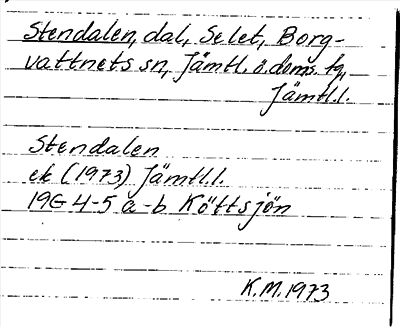 Stendalen, dal, Selet, Borg-
vattnets sn, Jämtl. ö. doms. tg,
Jämtl.l.
Stendalen
ek (1973) Jämtl.l.
19G 4-5 a-b Köttsjön
K.M.1973